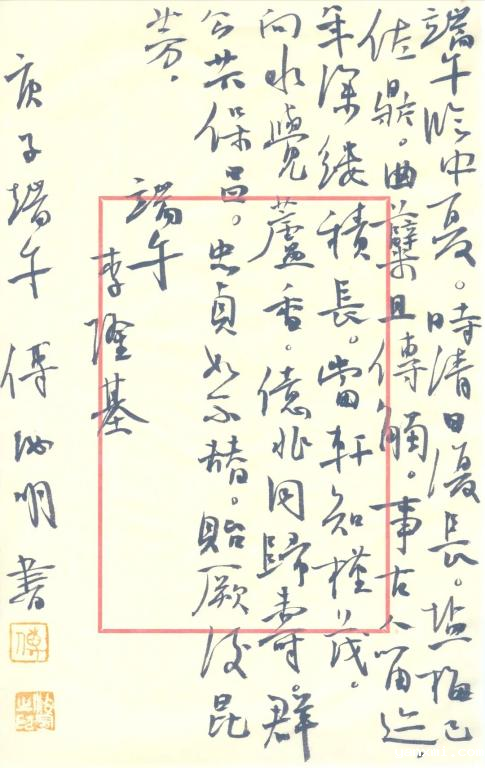 端午临中夏。時清日復長。塩梅已
佐鼎。曲糵且傳觴。事古人留迹。
年深缕積長。當軒知槿茂。
向水覺蘆香。億兆同歸壽。群
公共保昌。忠貞如不替。貽厥後昆
芳.
端午
李隆基
庚子端午 傅 明 書
傅